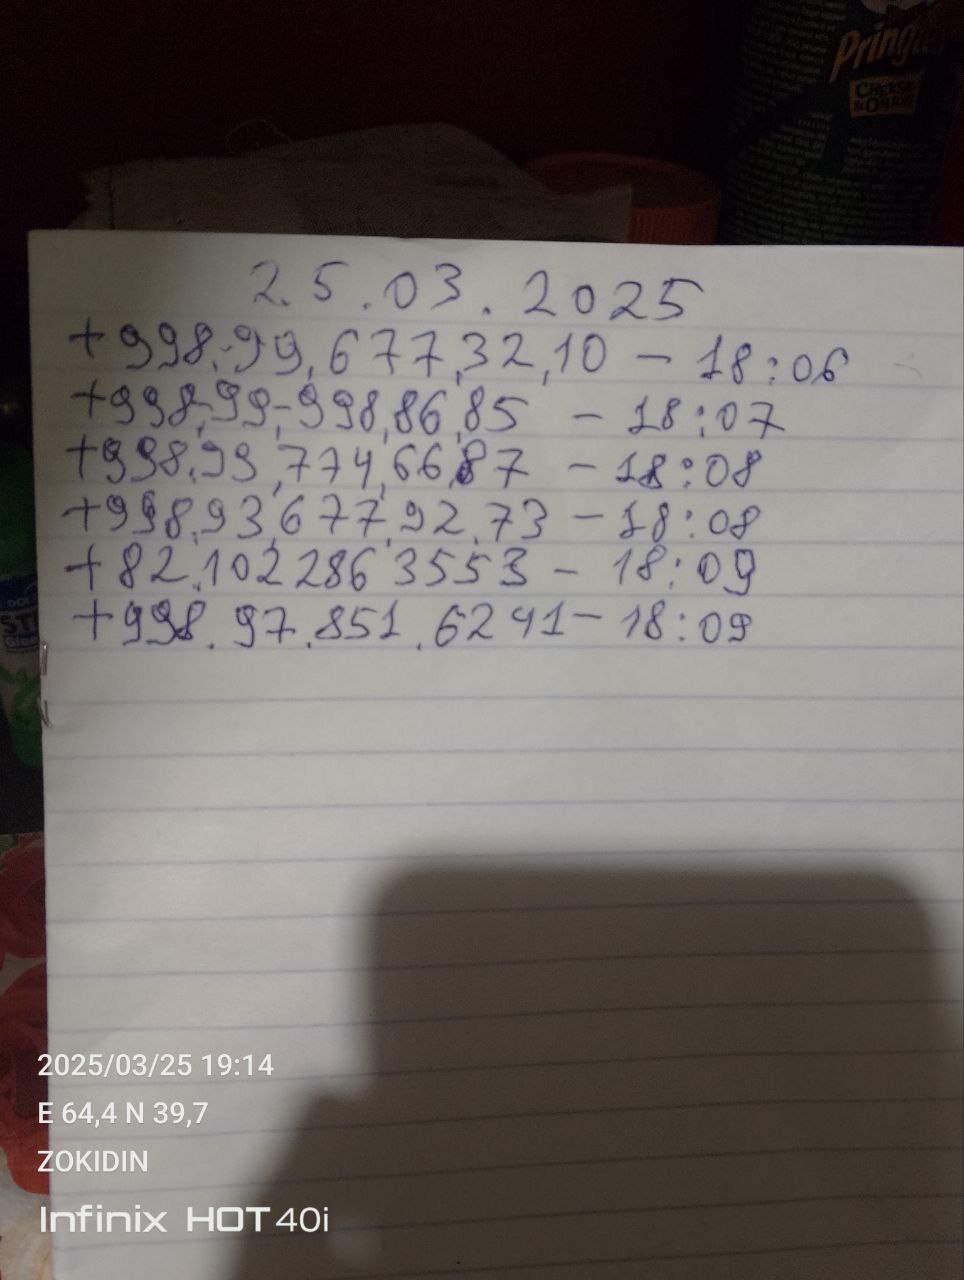 Pringles
CHEESE
& ONION
25.03.2025
+998.99,677,32,10 - 18:06
+998,99,998,86,85 - 18:07
+998.99,774,66,87 - 18:08
+998,93,677,92,73 - 18:08
+82.102 286 3553 - 18:09
+998.97.851.6241 - 18:09
2025/03/25 19:14
E 64,4 N 39,7
ZOKIDIN
Infinix HOT 40i